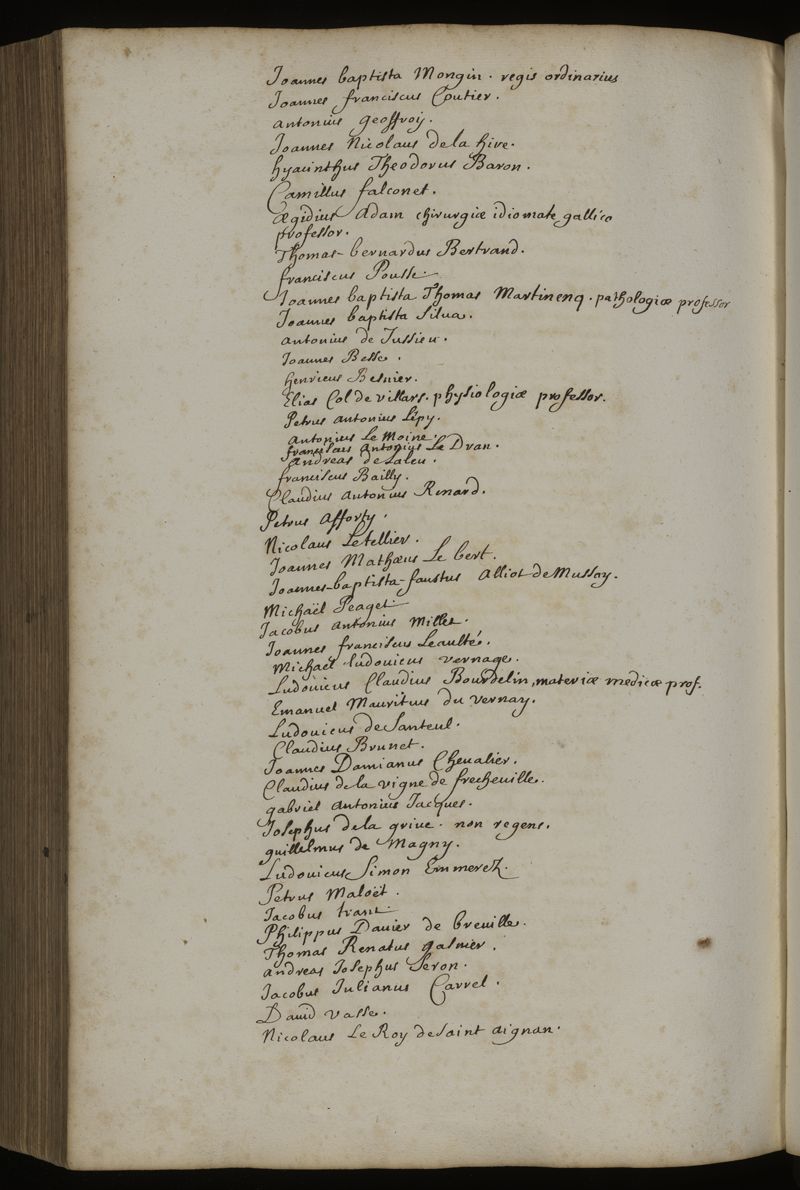 Joannes baptista Mongin. regis ordinarius
Joannes franciscus Coutier.
antonius geoffroij.
Joannes Nicolaus de la hire.
hyacinthus Theodorus Baron.
Camillus falconet.
ægidius Adam chirurgiæ idiomate gallico
professor.
Thomas-bernardus Bertrand.
franciscus Pousse.
Joannes baptista Thomas Martinenq. pathologiæ professor
Joannes baptista Silua.
antonius de Jussieu.
Joannes Besse.
henricus Besnier.
Elias Col de villars. physiologiæ professor.
Petrus antonius Lépy.
antonius Le Moine.
franciscus antonius Le Dran.
andreas de Laleu.
franciscus Bailly.
Claudius antonius Renard.
Petrus afforty.
Nicolaus Letellier.
Joannes Mathæus Le bert.
Joannes-baptista-faustus alliot de Mussay.
Michaël Peaget
Jacobus antonius Millet.
Joannes franciscus Leaulté.
Michaël ludouicus vernage.
Ludouicus Claudius Bourdelin, materiæ medicæ prof.
Emanuel Mauritius du vernay.
Ludouicus de Santeul.
Claudius Brunet.
Joannes Damianus Cheualier.
Claudius de la vigne de frecheuille.
gabriel antonius Jacques.
Josephus de la griue. non regens.
guillelmus de Magny.
Ludouicus Simon Emmerez.
Petrus Maloët.
Jacobus trant
Philippus Dauier de breuille.
Thomas Renatus gasnier.
andreas Josephus Seron.
Jacobus Julianus Carrel.
Dauid vasse.
Nicolaus Le Roy de saint aignan.